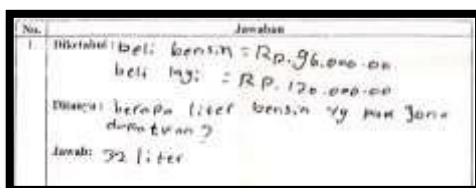 No. Jawaban
1. Diketahui: beli bensin = Rp. 96.000.00
beli lagi = Rp. 120.000.00
Ditanya: berapa liter bensin yg pak Joni
dapatkan?
Jawab: 32 liter